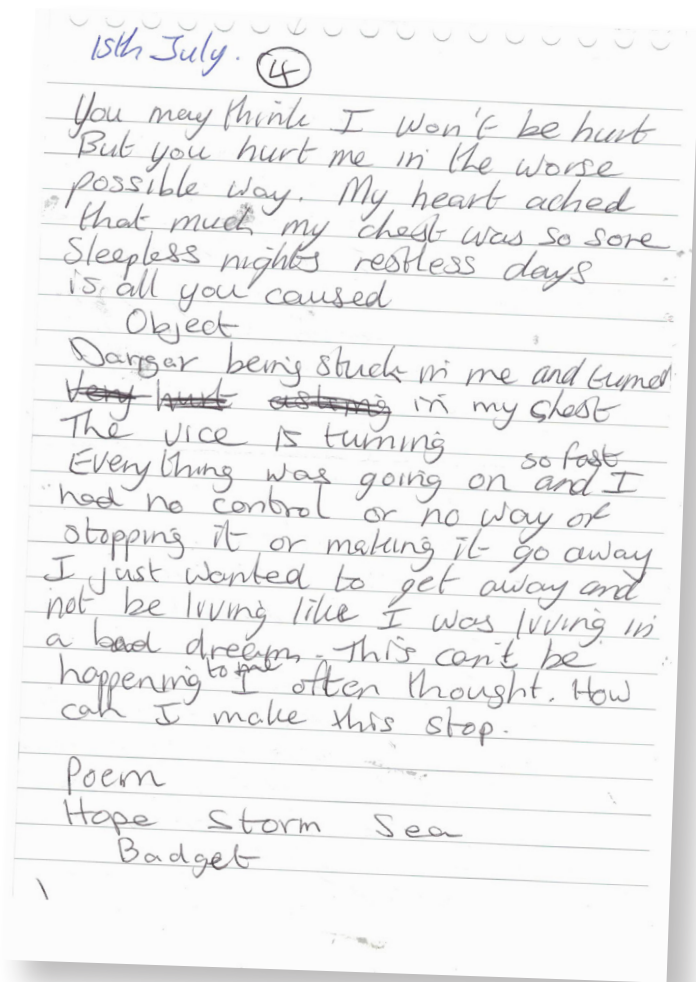 15th July. 4
You may think I won't be hurt
But you hurt me in the worse
possible way. My heart ached
that much my chest was so sore
Sleepless nights restless days
is all you caused
Object
Dargar being stuck in me and turned
very hurt in my chest
The vice is turning
so fast
Everything was going on and I
had no control or no way of
stopping it or making it go away
I just wanted to get away and
not be living like I was living in
a bad dream. This can't be
happening to me I often thought. How
can I make this stop.
Poem
Hope Storm Sea
Badget